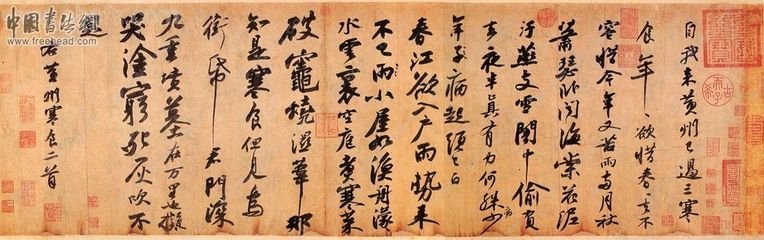 中國書法網
www.freehead.com
自我來黃州已過三寒
食年〻欲惜春〻去不
容惜今年又苦雨兩月秋
蕭瑟卧聞海棠花泥
汙燕支雪闇中偷負
去夜半真有力何殊少
病
年子病起頭已白
春江欲入户雨勢來
不已雨小屋如漁舟濛〻
水雲裏空庖煮寒菜
破竈燒濕葦那
知是寒食但見烏
銜帋君門深
九重墳墓在万里也擬
哭塗窮死灰吹不
起
右黃州寒食二首